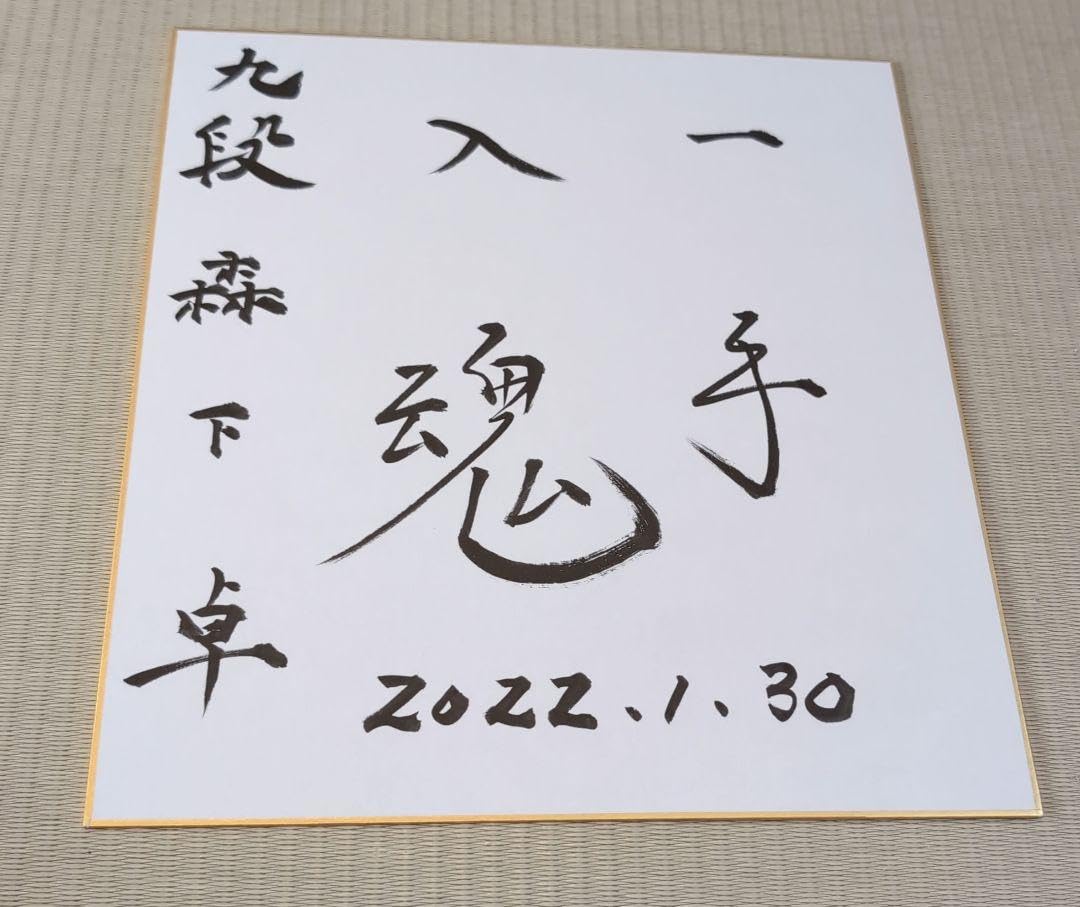 一手
入魂
九段 森下卓
2022.1.30